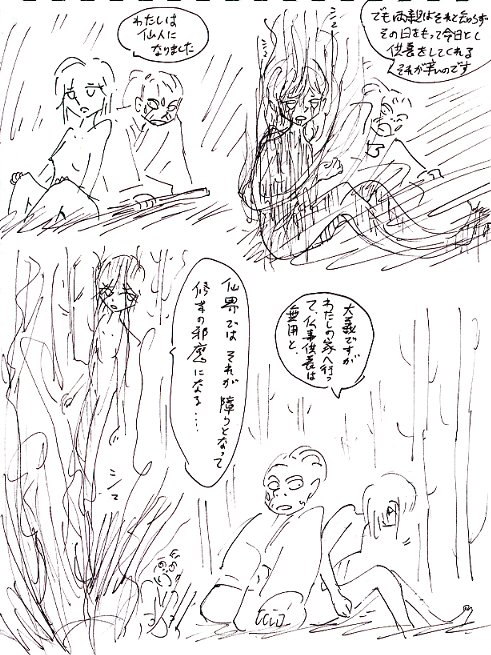 わたしは
仙人に
なりました
でも両親はそれを知らず
その日をもって今日とし
供養をしてくれる
それが辛いのです
仙界では それが 障りとなって
修業の邪魔になる….
大義ですが
わたしの家へ行っ
て、仏事供養は
無用と、